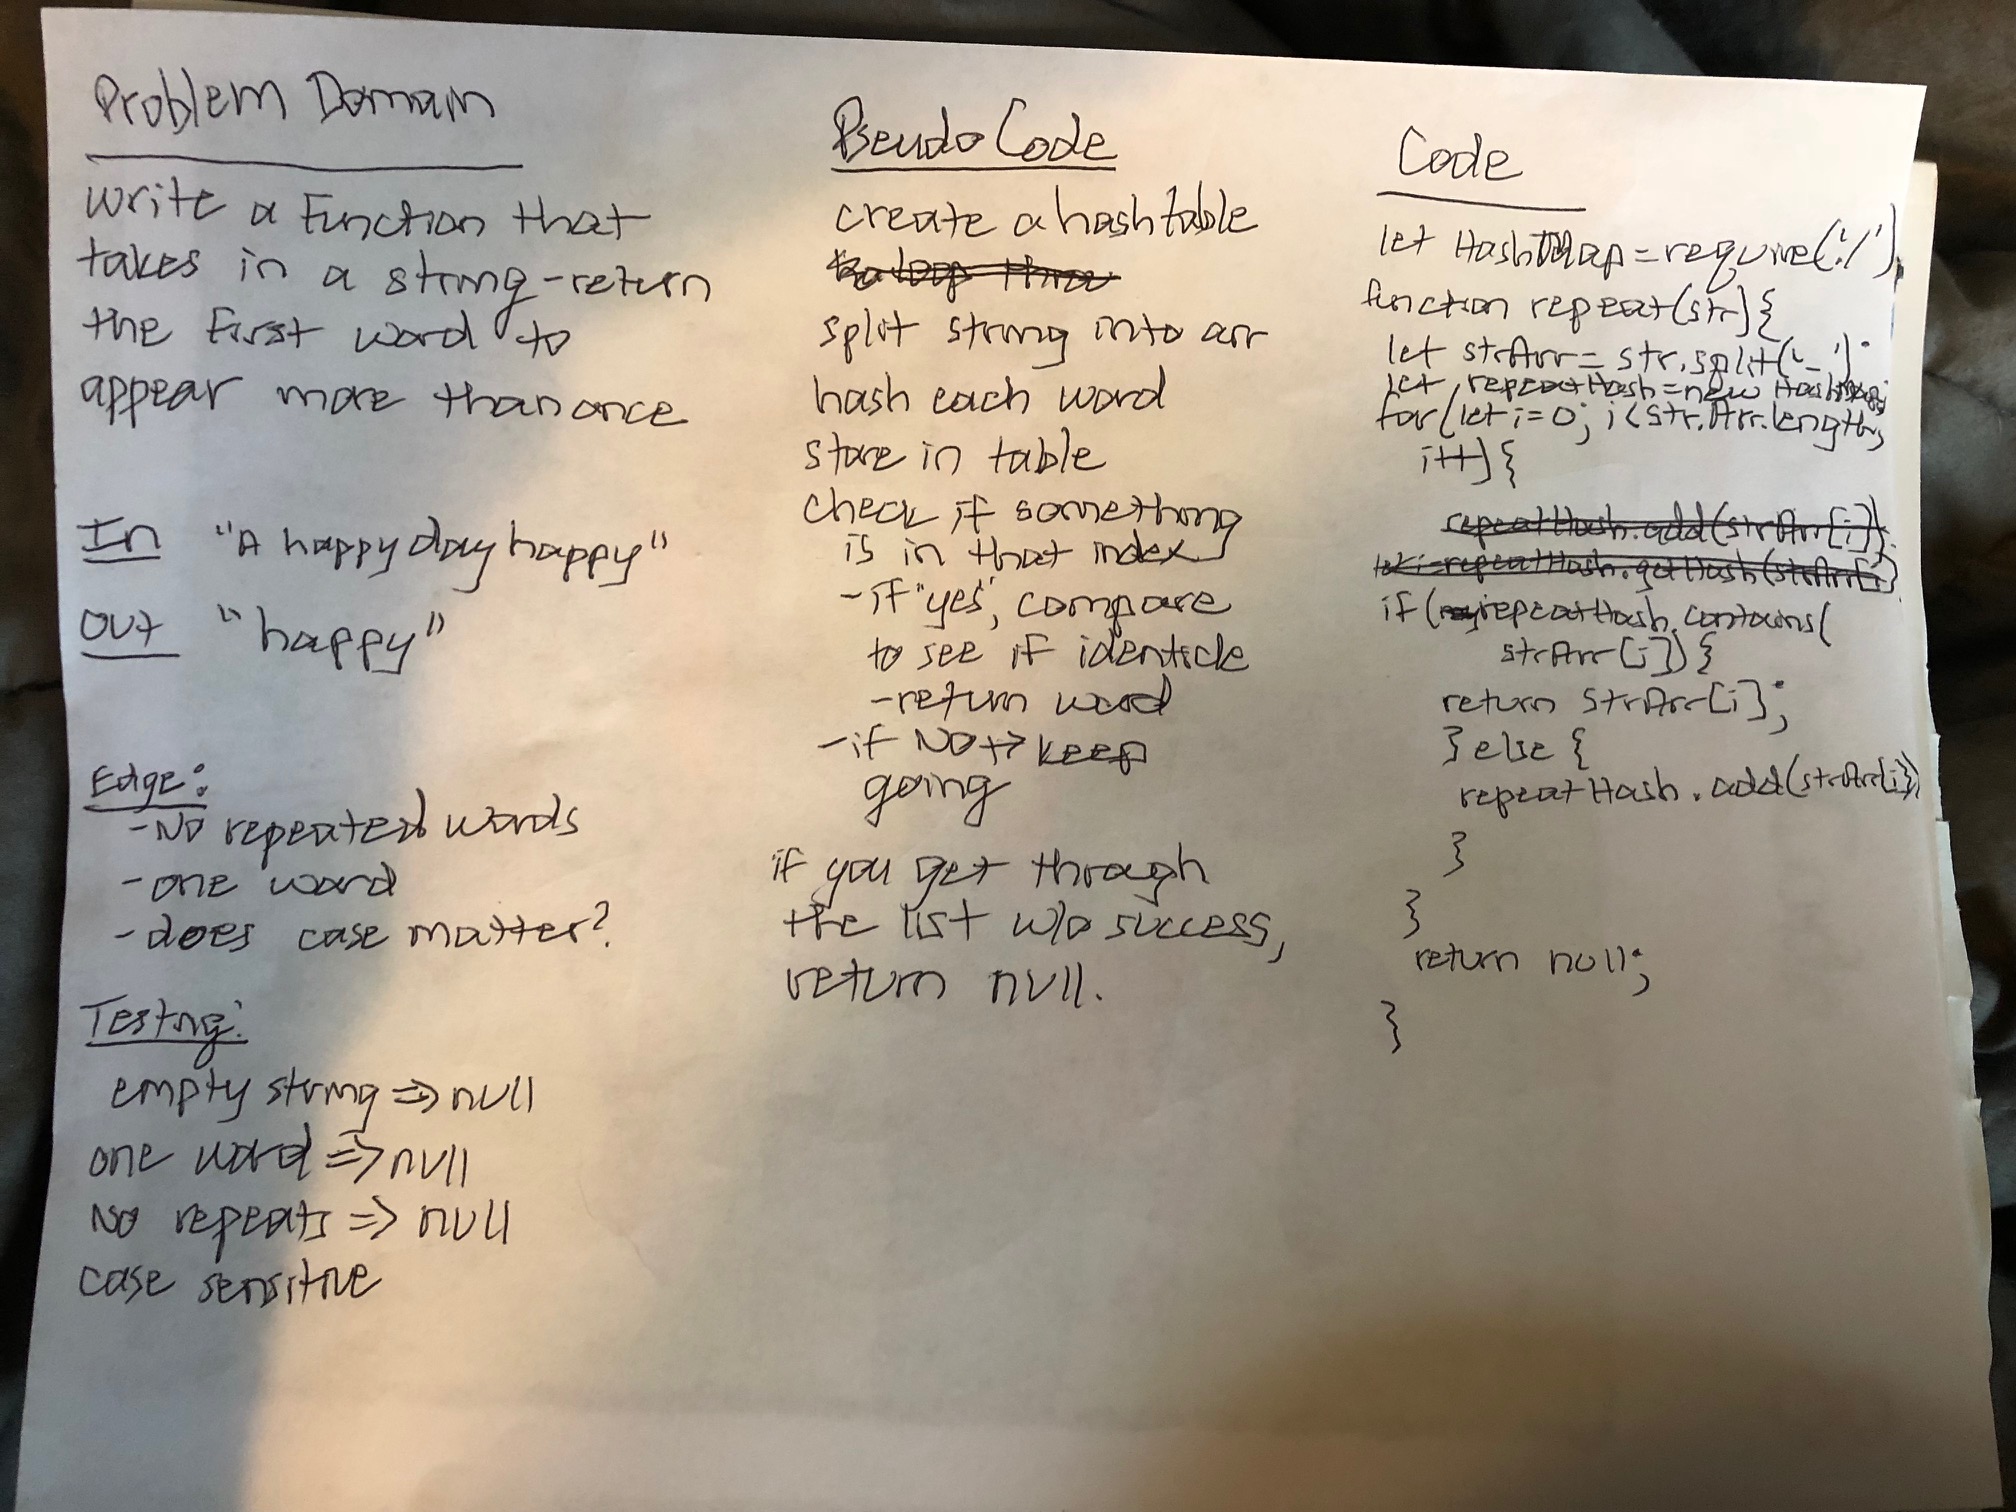 Problem Domain
write a function that
takes in a string - return
the first word to
appear more than once
In "A happy day happy"
Out "happy"
Edge:
- No repeated words
- one word
- does case matter?
Testing:
empty string => null
one word => null
No repeats => null
case sensitive
Pseudo Code
create a hash table
split string into arr
hash each word
store in table
check if something
is in that index
- if "yes", compare
to see if identicle
- return word
- if NO -> keep
going
if you get through
the list w/o success,
return null.
Code
let HashMap = require('./')
function repeat(str){
let strArr = str.split('_');
let repeatHash = new HashMap;
for(let i=0; i<str.Arr.length;
i++){
repeatHash.add(strArr[i])
let i = repeatHash.getHash(strArr[i])
if (repeatHash.contains(
strArr[i]){
return strArr[i];
} else {
repeatHash.add(strArr[i])
}
}
return null;
}